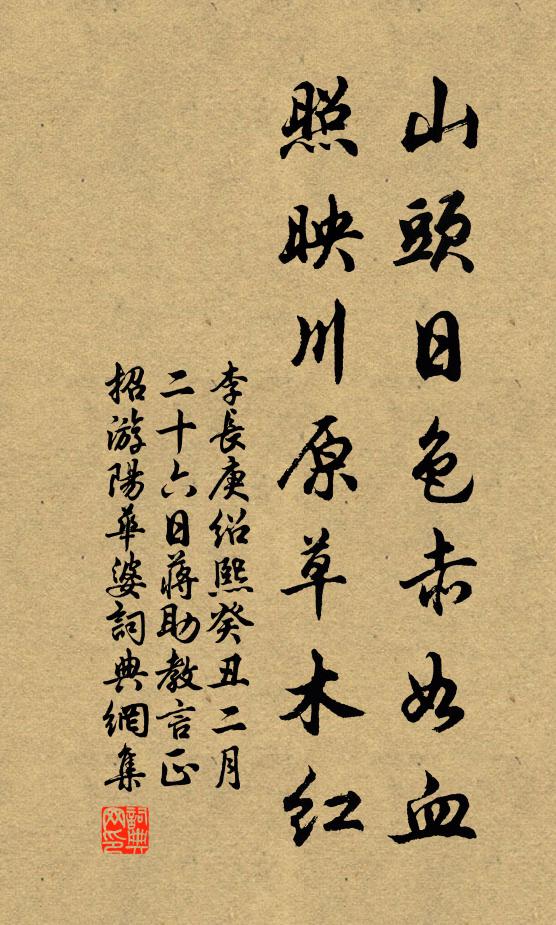 山頭日色赤如血
照映川原草木紅
李長庚紹熙癸丑二月
二十六日蔣助教言正
招游陽華婆詞典網集
詞典网印